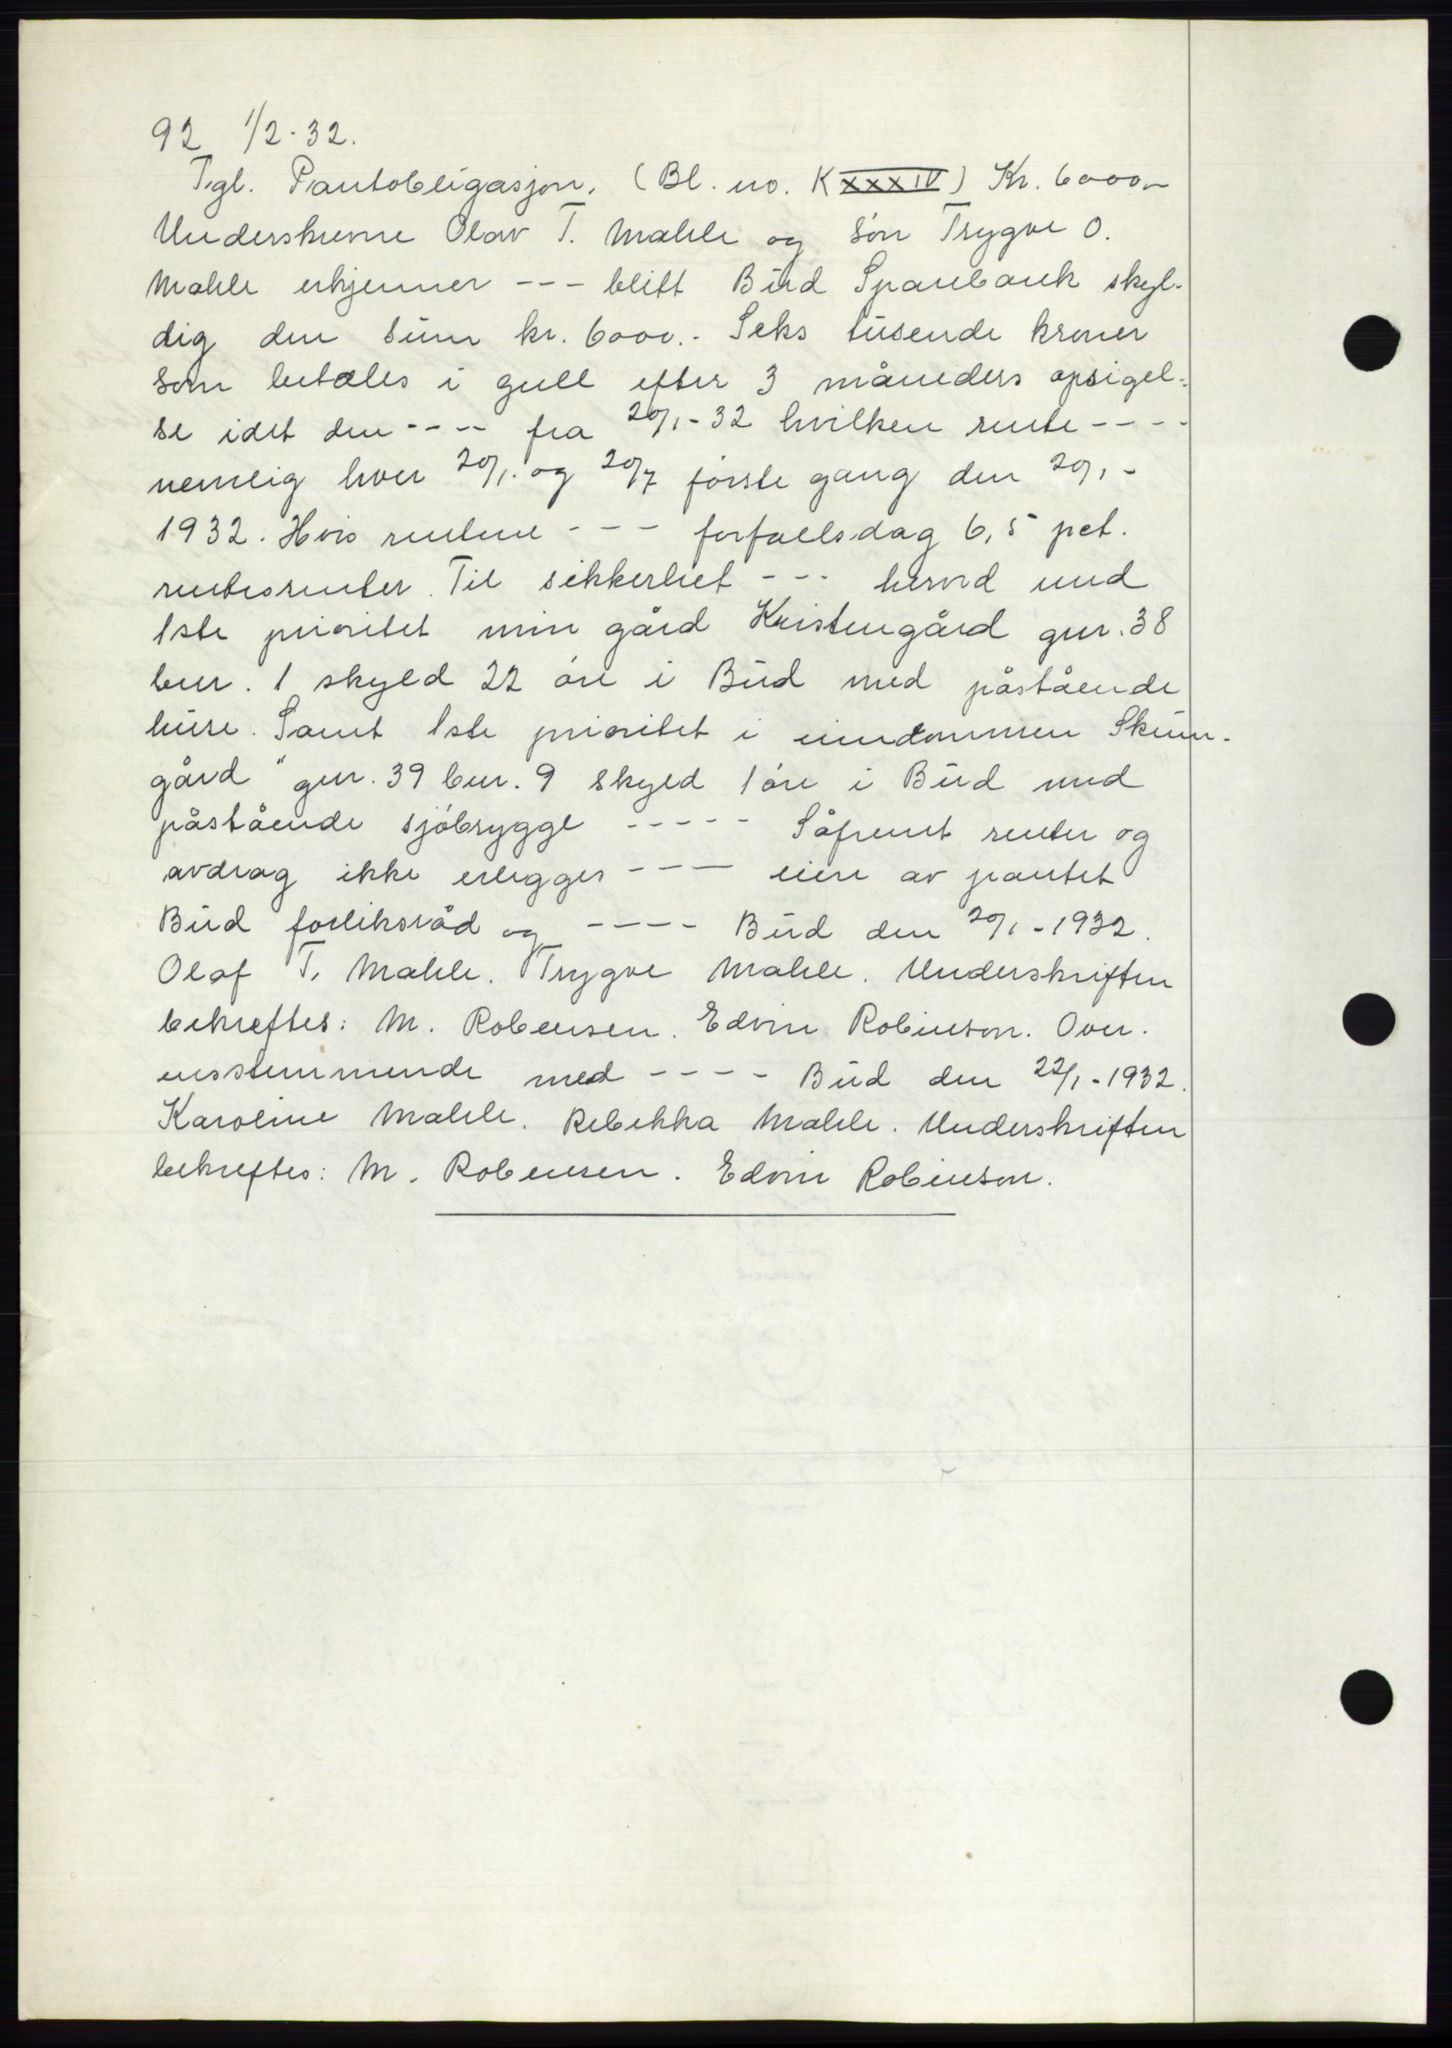 92 1/2-32.
Tgl. Pantobligasjon. (Bl. no. K XXXIV) Kr. 6000-
Underskrevne Olav T. Mahle og Søn Trygve O.
Mahle erkjenner --- blitt Bud Sparebank skyl-
dig den sum kr. 6000.- Seks tusende kroner
som betales i gull efter 3 måneders opsigel-
se idet den ---- fra 20/1-32 hvilken rente ----
nemlig hver 20/1. og 20/7 første gang den 20/1-
1932. Hvis rentene --- forfallsdag 6,5 pct.
rentesrenter. Til sikkerhet --- herved med
1ste prioritet min gård Kristengård gnr. 38
bnr. 1 skyld 22 øre i Bud med påstående
huse. Samt 1ste prioritet i eiendommen Skun-
gård" gnr. 39 bnr. 9 skyld 1 øre i Bud med
påstående sjøbrygge ----- Såfremt renter og
avdrag ikke erlegges --- eiere av pantet
Bud forliksråd og ---- Bud den 20/1-1932.
Olaf T. Mahle. Trygve Mahle. Underskriften
bekreftes: M. Robensen. Edvin Robinson. Over-
ensstemmende med ---- Bud den 22/1-1932.
Karoline Mahle. Rebekka Mahle. Underskriften
bekreftes: M. Robensen. Edvin Robinson.